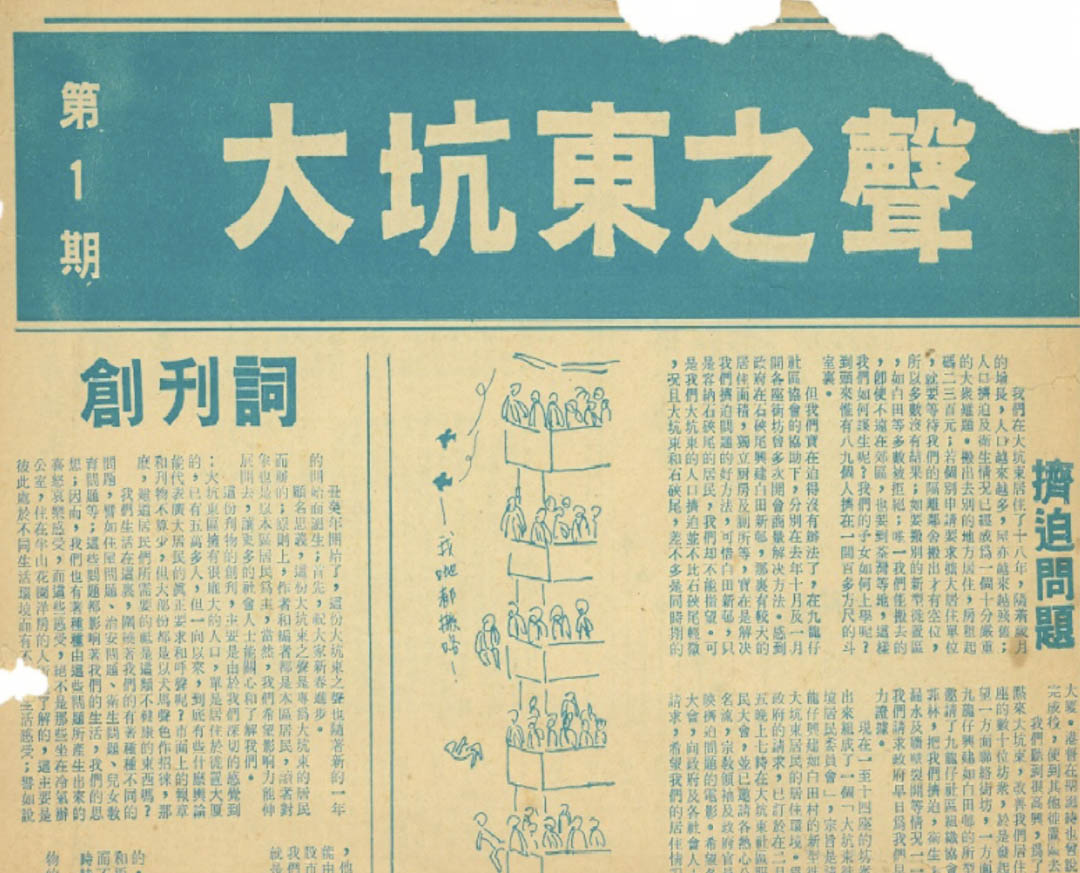 第1期
大坑東之聲
擠迫問題
我們在大坑東居住了十八年，隨着歲月
的增長，人口越來越多，屋亦越來越殘舊；
人口擠迫及衞生情况已經成爲一個十分嚴重
的大衆難題。搬出去別的地方居住，房租起
碼二三百元；若個別申請要求擴大居住單位
，就要等待我們的隔離鄰舍搬出才有空位，
所以多數沒有結果；如要搬別的新型徙置區
，如白田等多數被拒絕；唯一我們能搬去的
，卽使不遠在郊區，也要到荃灣等地，這樣
我們如何謀生呢？我們的子女如何上學呢？
到頭來惟有八九個人擠在一間百多方尺的斗
室裏。
但我們實在迫得沒有辦法了，在九龍仔
社區協會的協助下，分別在去年十月及一月
開各座街坊曾多次開會商量解決方法。感到
政府在石硤尾興建白田新邨，那裏有較大的
居住面積，獨立厨房及厠所等，實在是解決
我們擠迫問題的好方法，可惜白田新邨，只
是容納石硤尾的居民，我們却不能指望。可
是我們大坑東的人口擠迫並不比石硤尾輕微
，況且大坑東和石硤尾，差不多是同時期的
大廈。港督在視察時也曾說
完成後，便到其他徙置區去
我們聽到很高興，爲了
點來大坑東，改善我們居住
座的數十位坊衆，於是發起
望一方面聯絡街坊，一方面
九龍仔興建如白田邨的新型
邀請了九龍仔社區組織協會
菲林，把我們擠迫，衞生
漏水及牆壁裂開等情况一一
我們請求政府早日爲我們
力證據。
現在一至十四座的坊衆
出來組成了一個「大坑東徙
境居民委員會」，宗旨是請
龍仔興建如白田村的新型徙
大坑東居民的居住環境。
政府的請求，已訂於在二月
五晚上七時在大坑東社區
民大會，並已邀請各熱心
名流，宗敎領袖及政府官
映擠迫問題的電影。希望各
大會，向政府及各社會人
請求，希望我們的居住情
－我哋都搬咯－
創刊詞
癸丑年開始了，這份大坑東之聲也隨著新的一年
的開始而誕生；首先，祝大家新春進步。
顧名思義，這份大坑東之聲是專爲大坑東的居民
而辦的；原則上，作者和編者都是本區居民，讀者對
象也是以本區居民爲主，當然，我們希望影響力能伸
展開去，讓更多的社會人士能關心和了解我們。
這份刊物的創刊，主要是由於我們深切的感覺到
；大坑東區擁有很龐大的人口，單是居住於徙置大廈
的，已有五萬多人，但一向以來，到底有些什麼輿論
能代表廣大居民的眞正要求和呼聲呢？市面上的報章
和刊物不算少，但大部份都是以犬馬聲色作招徠，那
麼，難道居民們所需要的祇是這類不健康的東西嗎？
我們生活在這裏，圍繞著我們的有著種種不同的
問題，譬如住屋問題、治安問題、衛生問題、兒女敎
育問題等；這些問題都影響著我們的生活，我們的思
想；因而，我們也有著種種由這些問題所產生出來的
喜怒哀樂感受，而這些感受，絕不是那些坐在冷氣辦
公室，住在半山花園洋房的人所了解的，這主要是
彼此處於不同生活環境而有不生活感受；譬如說